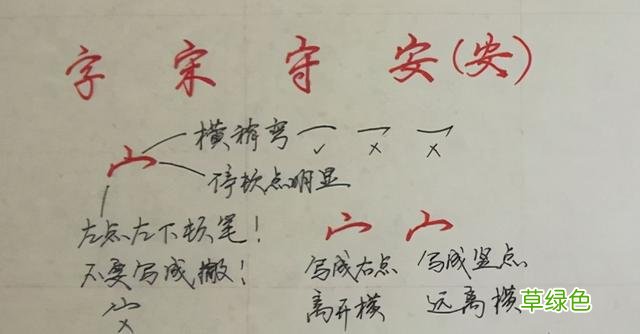 字 宋 守 安(安)
宀 横稍弯 ✓ × ×
停顿点明显
左点左下顿笔!
不要写成撇!
×
写成右点
离开横
写成竖点
远离横
草绿色